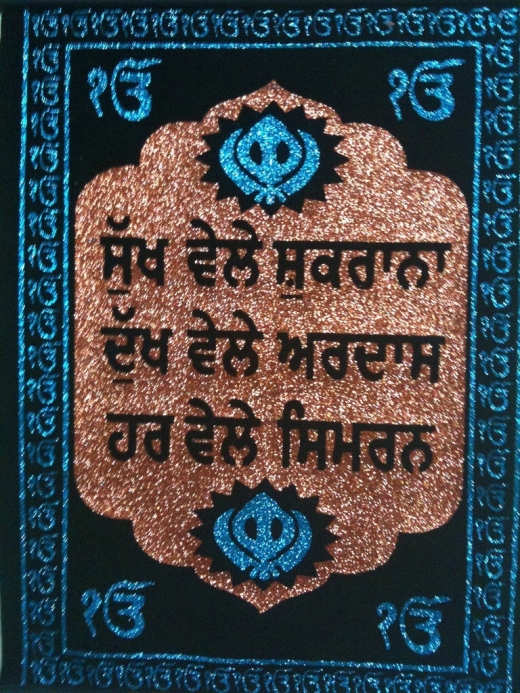 ੴ ੴ
ਸੁੱਖ ਵੇਲੇ ਸ਼ੁਕਰਾਨਾ
ਦੁੱਖ ਵੇਲੇ ਅਰਦਾਸ
ਹਰ ਵੇਲੇ ਸਿਮਰਨ
ੴ ੴ